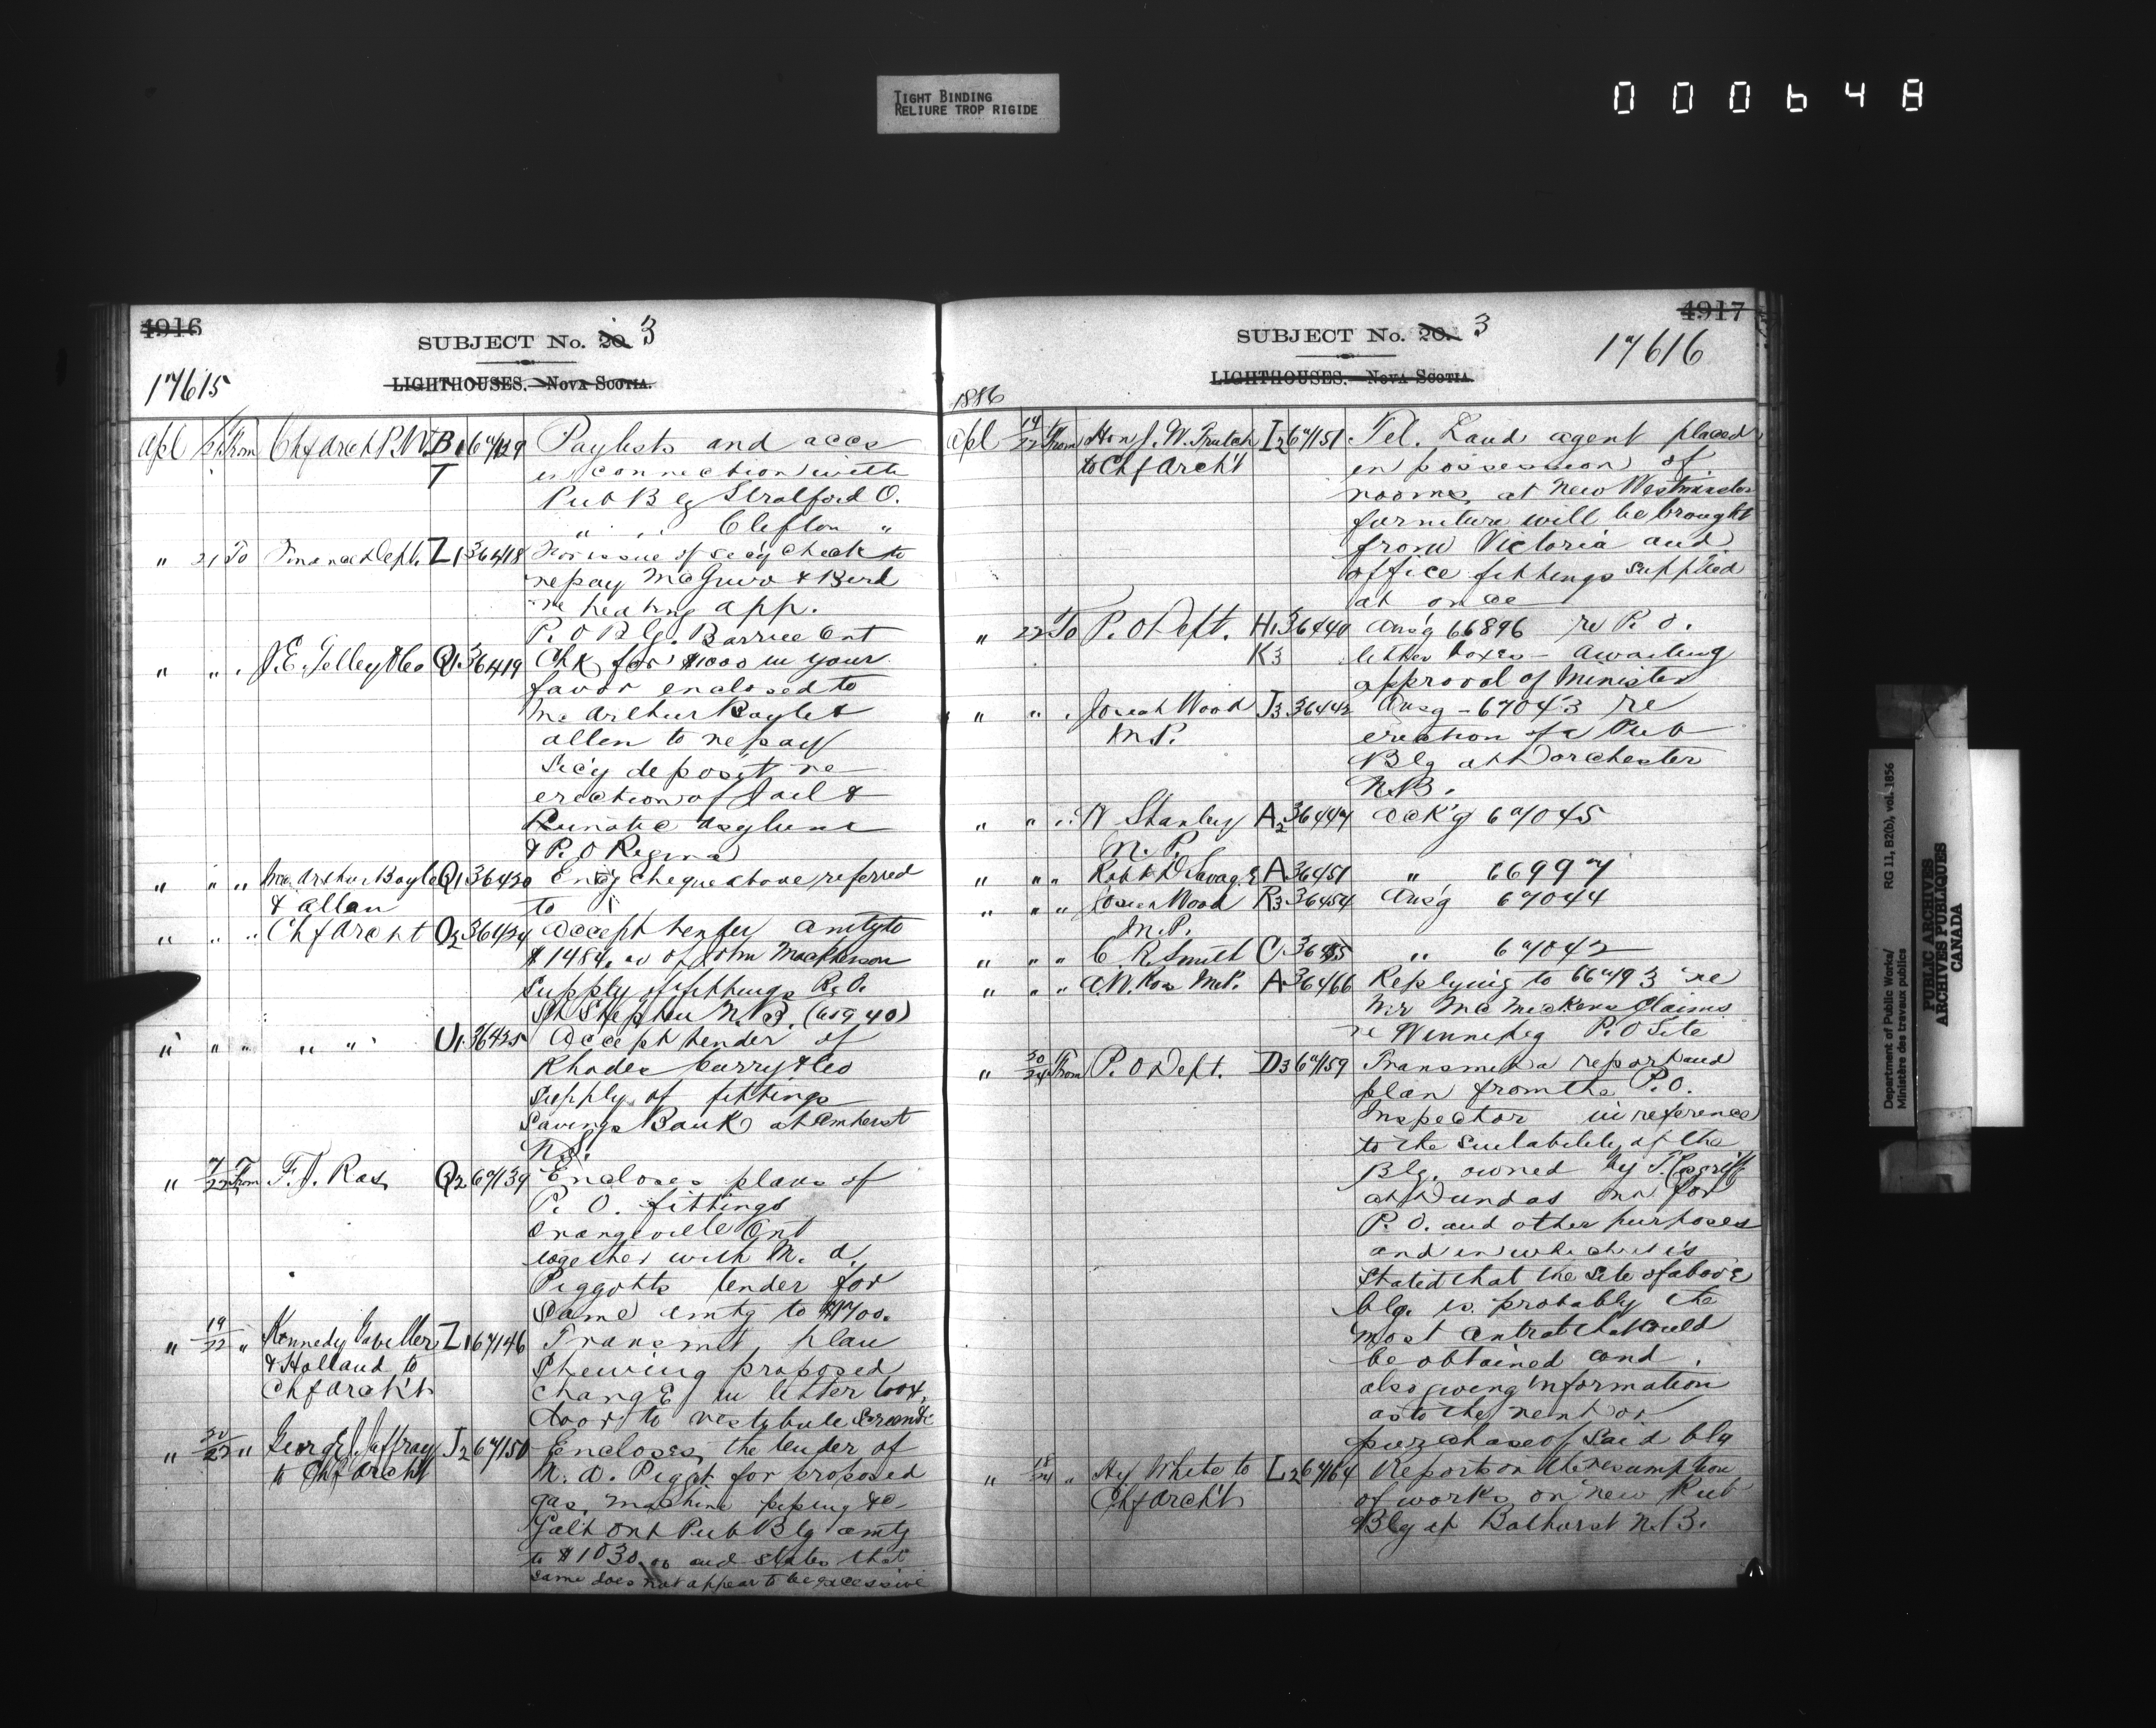 TIGHT BINDING
RELIURE TROP RIGIDE
000648
4916
SUBJECT No. 20. 3
17615
LIGHTHOUSES.—Nova Scotia.
Apl 21 From Chf Arch P.W. B1 67129 Paylists and accs
T in connection with
Pub Blg Stratford O.
" " Clifton "
" 21 To Finance Dept. Z1 36418 For issue of secy check to
repay McGuire & Bird
re heating app.
P.O Blg. Barrie Ont
" " " J.E. Gelley & Co Q1 36419 Chk for $1000 in your
favor enclosed to
McArthur Boyle &
Allen to repay
Secy deposit re
erection of Jail &
Lunatic Asylum
& P.O Regina
" " " McArthur Boyle Q1 36420 Encg cheque above referred
& Allan to
" " " Chf Archt O2 36424 Accept tender amtg to
$1484.00 of John Mackenson
supply of fittings P.O.
St Stephen N.B. (65940)
" " " " " U1 36425 Accept tender of
Rhodes Curry & Co
supply of fittings
Savings Bank at Amherst
N.S.
" 7/22 From F.J. Ras, Q2 67139 Encloses plans of
P.O. fittings
Orangeville Ont
together with M. A.
Piggotts tender for
same amtg to $1700.
" 19/22 " Kennedy Gaviller Z1 67146 Transmit plan
& Holland to Shewing proposed
Chf Archt change in letter box,
door to vestibule screen &c
" 20/22 " George J. Jaffray J2 67150 Encloses the tender of
to Chf Archt M. A. Piggot for proposed
gas machine piping &c
Galt Ont Pub Blg amtg
to $1030.00 and states that
same does not appear to be excessive
4917
SUBJECT No. 20. 3
17616
LIGHTHOUSES.—Nova Scotia.
1886
Apl 19/22 From Hon J.W. Trutch I2 67151 Tel. Land agent placed
to Chf Archt in possession of
rooms at New Westminster
furniture will be brought
from Victoria and
office fittings supplied
at once
" 22 To P.O Dept. H1 36440 Ansg 66896 re P.O.
K3 letter boxes — awaiting
approval of Minister
" " " Josiah Wood J3 36442 Ansg — 67043 re
M.P. erection of a Pub
Blg at Dorchester
N.B.
" " " W Stanley A2 36447 Ack'g 67045
M.P.
" " " Robt D Savage A 36451 " 66997
" " " Josiah Wood R3 36454 Ansg 67044
M.P.
" " " C. R. Smith C 36455 " 67042
" " " A.W. Ross M.P. A 36466 Replying to 66793 re
Mr McMickens Claims
re Winnipeg P.O Site
" 20/24 From P.O Dept. D3 67159 Transmit a report and
plan from the P.O.
Inspector in reference
to the suitability of the
Blg. owned by T. Cosgriff
at Dundas Ont for
P.O. and other purposes
and in which it is
stated that the site of above
blg. is probably the
most central that could
be obtained and
also giving information
as to the rent or
purchase of said blg
" 18/24 " Hy White to L2 67164 Reports on the resumption
Chf Archt of works on new Pub
Blg at Bathurst N.B.
Department of Public Works/
Ministère des travaux publics
RG 11, B2(b), vol. 1856
PUBLIC ARCHIVES
ARCHIVES PUBLIQUES
CANADA